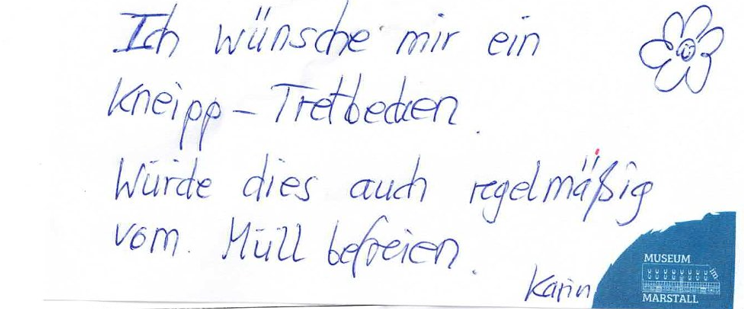 Ich wünsche mir ein
Kneipp-Tretbecken.
Würde dies auch regelmäßig
vom. Müll befreien.
Karin
MUSEUM
MARSTALL